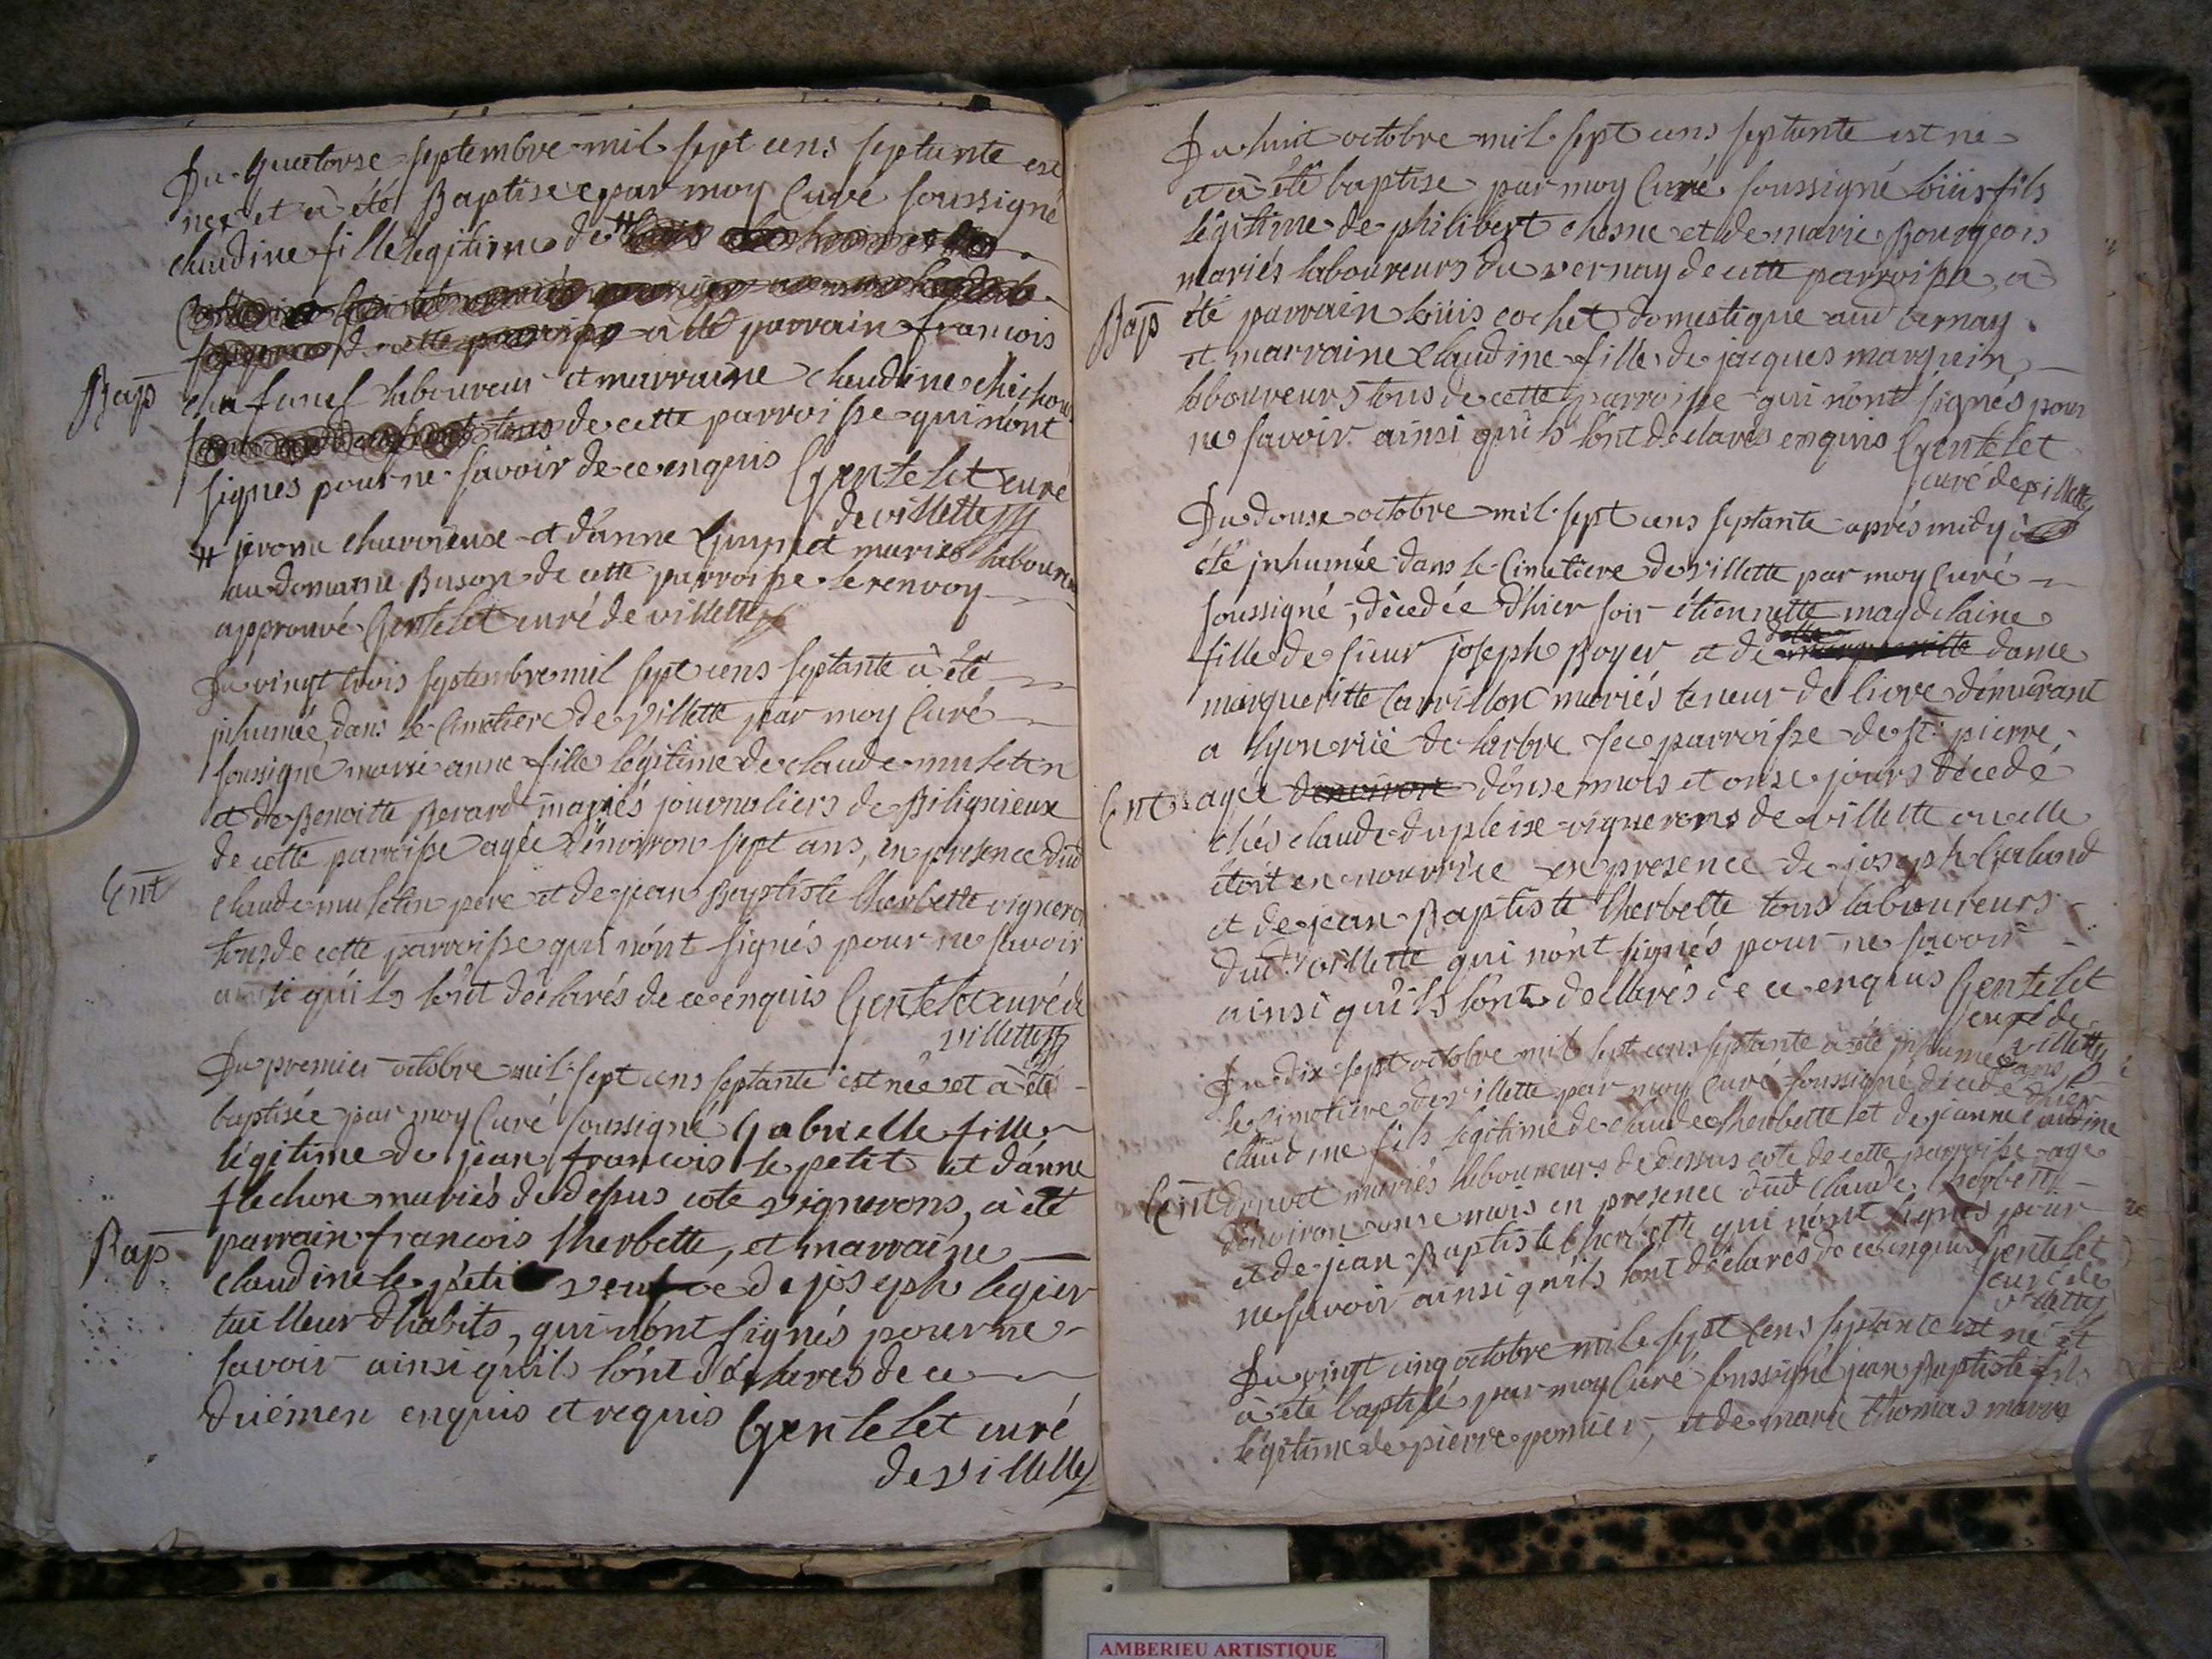 Du quatorse septembre mil sept cens septante est
nee et à été Baptisée par moy Curé soussigné
claudine fille legitime de #
à été parrain francois
laboureur et marraine claudine
tous de cette parroisse qui nônt
signes pour ne savoir de ce enquis Gentelet curé
de villette
# jerome charvoieuse et d'anne mariés laboureurs
au domaine Buson de cette parroisse le renvoy
approuvé Gentelet curé de villette
Du vingt trois septembre mil sept cens septante à été
inhumée dans le Cimetiere de Villette par moy Curé
soussigné marie anne fille légitime de claude muletin
et de Benoitte Berard mariés journaliers de Bilignieux
de cette parroisse agée d'énviron sept ans, en presence dud
Ent
claude muletin pere et de jean Baptiste lherbette vigneron
tous de cette parroisse qui nônt signés pour ne savoir
ainsi qui ls sônt déclarés de ce enquis Gentelet curé de
villette
Du premier octobre mil sept cens septante est née et à été
baptisée par moy Curé soussigné Gabrielle fille
légitime de jean francois le petit et d'anne
flechon mariés de dessus cote vignerons, à été
Bap
parrain francois lherbette, et marraine
claudine le petit veufve de joseph legier
tailleur d'habits, qui nônt signés pour ne
savoir ainsi qu'ils sônt déclarés de ce
duëmen enquis et requis Gentelet curé
de Villette
Bap
Du huit octobre mil sept cens septante est ne
et à été baptise par moy Curé soussigné loüis fils
légitime de philibert chesne et de marie Bourgeois
mariés laboureurs du vernay de cette parroisse, à
Bap
été parrain loüis cochet domestique aud vernay
et marraine claudine fille de jacques marguin
laboureurs tous de cette parroisse qui nônt signés pour
ne savoir ainsi qu'ils sônt declarés enquis Gentelet
curé de villette
Du douse octobre mil sept cens septante aprés midy à
été inhumée dans le Cimetiere de Villette par moy Curé
soussigné, décedée d'hier soir étiennette magdelaine
fille de sieur joseph Boyer et de dame
margueritte Carrillon mariés teneur de livre démurant
a lyon rüe de larbre sec parroisse de st pierre
Ent
agée d'environ d'onse mois et onse jours décedé
chés claude dupleix vignerons de villette ou elle
étoit en nourrice en presence de joseph Galland
et de jean Baptiste lherbette tous laboureurs
dud Villette qui nônt signés pour ne savoir
ainsi qu'ils sônt declarés de ce enquis Gentelet
curé de
villette
Du dix sept octobre mil sept cens septante à été inhumé dans
le cimetiere de Villette par moy Curé soussigné décedé d'hier
claudine fils légitime de claude lherbette et de jeanne claudine
Ent
drivet mariés laboureurs de dessus cote de cette parroisse agé
d'énviron onse mois en presence dud claude lherbette
et de jean Baptiste lherbette qui nônt signés pour
ne savoir ainsi qu'ils sônt déclarés de ce enquis Gentelet
curé de
villette
Du vingt cinq octobre mil sept cens septante est né et
à été baptisé par moy Curé soussigné jean Baptiste fils
légitime de pierre pernier, et de marie thomas
AMBERIEU ARTISTIQUE